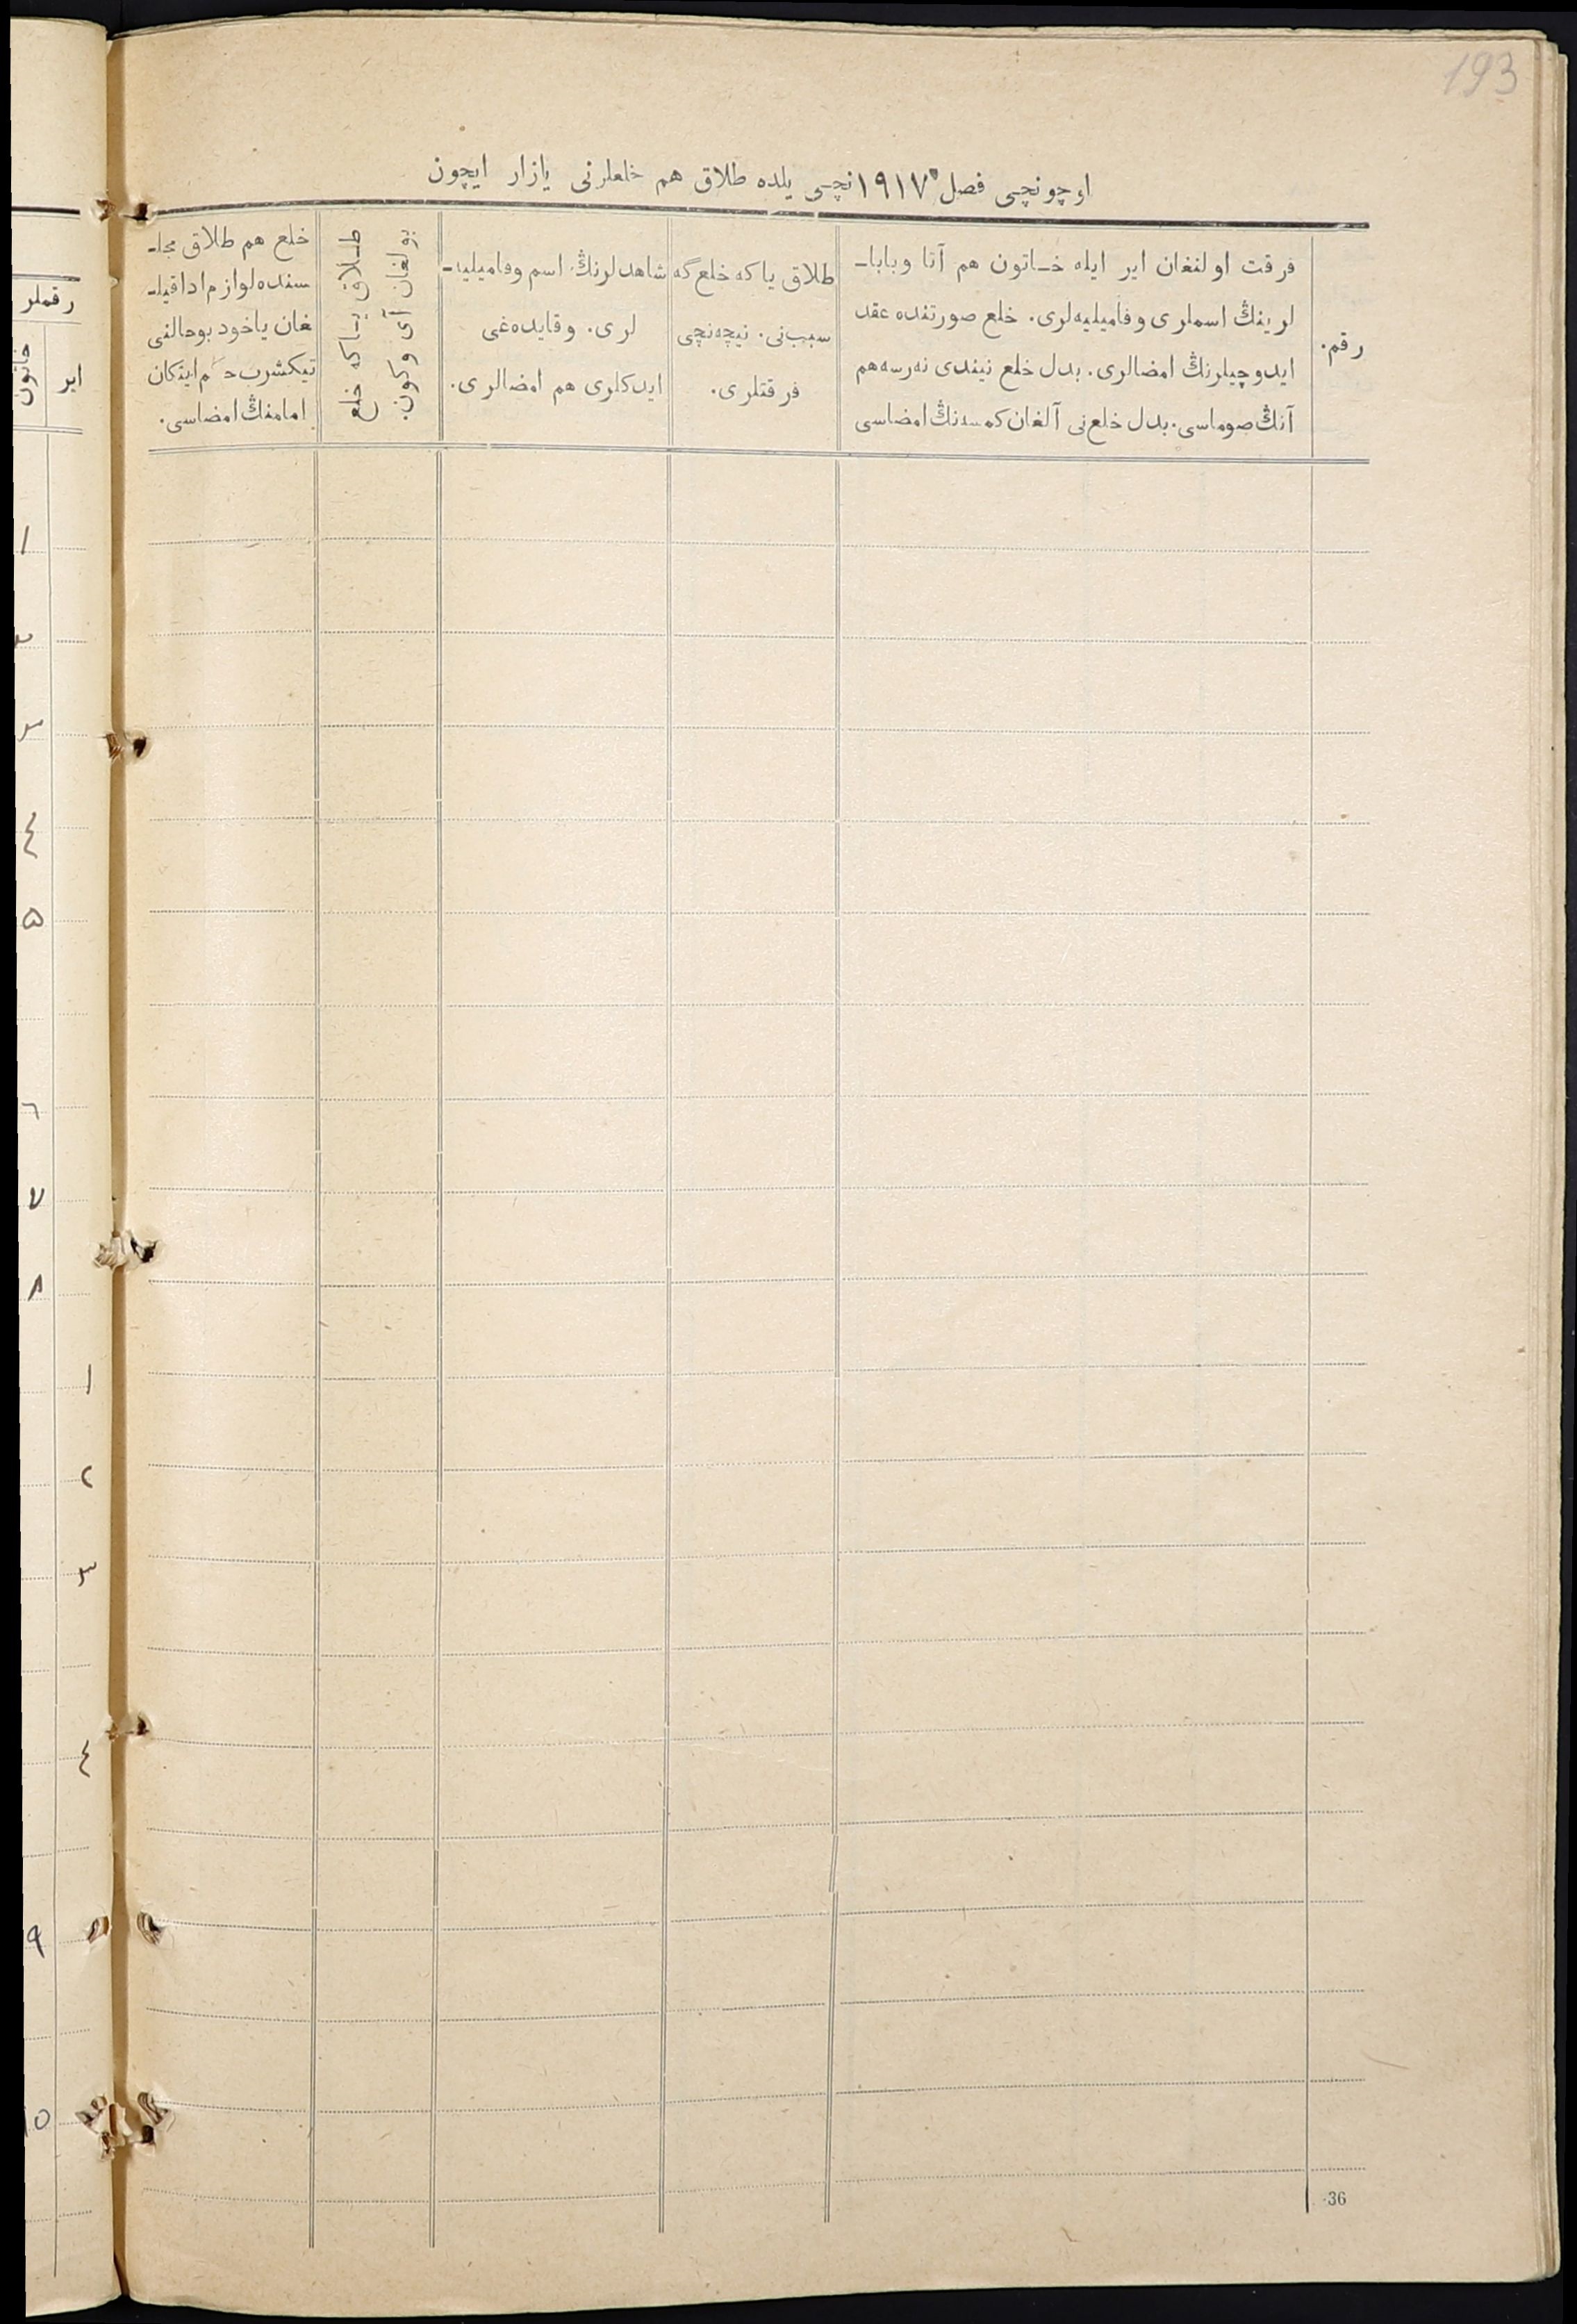 193
اوچونچی فصل ۱۹۱۷ نچی یلده طلاق هم خلعلرنی یازار ایچون
رقم.
فرقت اولنغان ایر ایله خـاتون هم آتا وبابا-
لرینڭ اسملری وفامیلیه‌لری. خلع صورتنده عقد
ایدوچیلرنڭ امضالری. بدل خلع نیندی نه‌رسه‌هم
آنڭ صوماسی. بدل خلع‌نی آلغان کمسه‌نڭ امضاسی
طلاق یاکه خلع‌گه
سبب‌نی. نیچه‌نچی
فرقتلری.
شاهدلرنڭ اسم وفامیلیه-
لری. وقایده‌غی
ایدکلری هم امضالری.
طـلاق یـاکه خلع
بولغان آی وکون.
خلع هم طلاق مجلـ
سنده‌لوازم اداقیلـ
غان یاخود بوحالنی
تیکشرب حکم ایتکان
امامنڭ امضاسی.
رقملر
ایر
خاتون
۱
۲
۳
٤
۵
٦
۷
۸
۱
۲
۳
٤
۹
۱۰
36